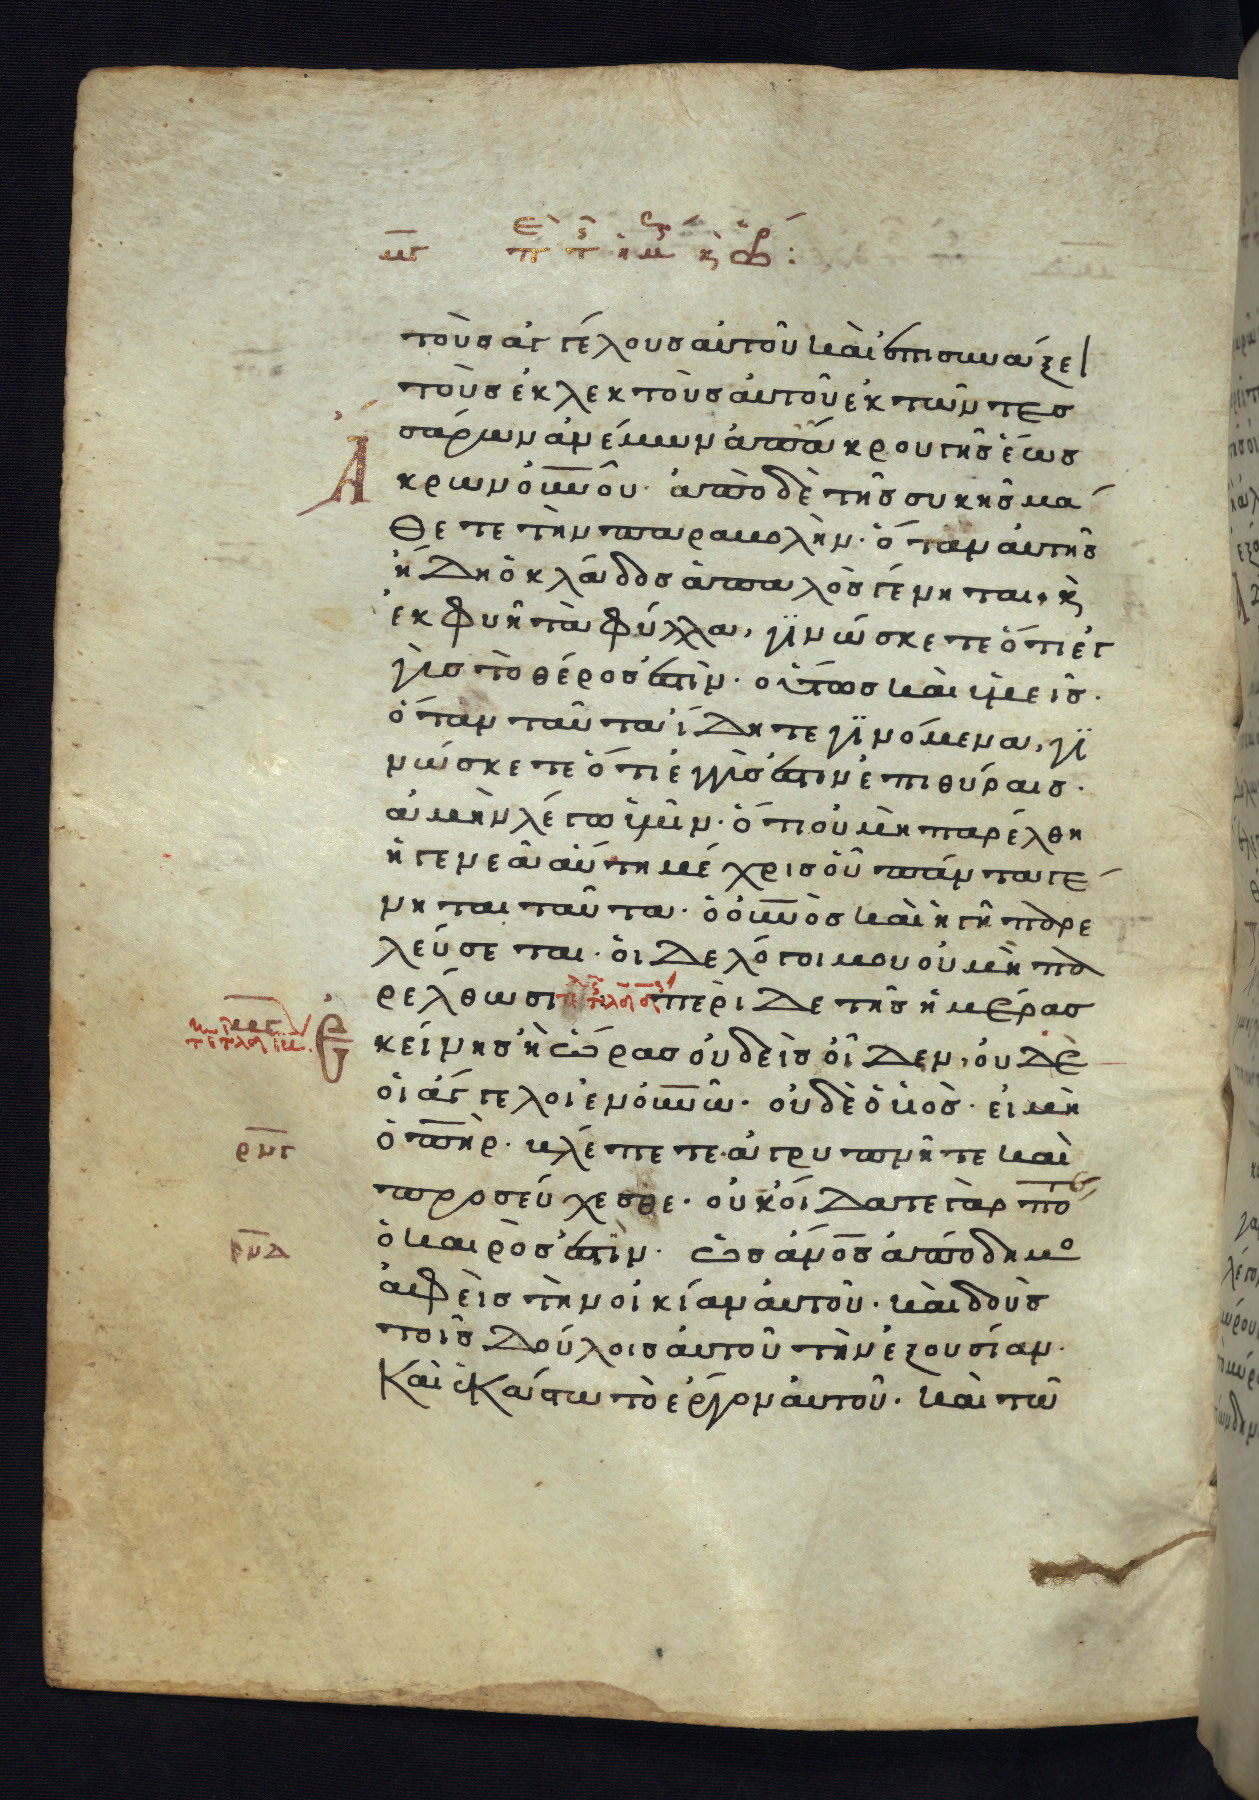 μγ
τοὺς ἀγγέλους αὐτοῦ καὶ ἐπισυνάξει
τοὺς ἐκλεκτοὺς αὐτοῦ ἐκ τῶν τεσ
σάρων ἀνέμων ἀπ' ἄκρου γῆς ἕως
κρων οὐνοῦ· ἀπὸ δὲ τῆς συκῆς μά
θετε τὴν παραβολήν· ὅταν αὐτῆς
ἤδη ὁ κλάδος ἁπαλὸς γένηται, κ
ἐκφυῆ τὰ φύλλα, γϊνώσκετε ὅτι ἐγ
γὺς τὸ θέρος ἐστὶν· οὕτως καὶ ὑμεῖς·
ὅταν ταῦτα ἴδητε γϊνόμενα, γϊ
νώσκετε ὅτι ἐγγύς ἐστιν ἐπι θύραις·
ἀμὴν λέγω ὑμῖν· ὅτι οὐ μὴ παρέλθη
ἡ γενεὰ αὕτη μέχρις οὗ πάντα γέ
νηται ταῦτα· ὁ οὐνὸς καὶ ἡ γῆ παρε
λεύσεται· οἱ δὲ λόγοι μου οὐ μὴ πα
ρέλθωσι περι δε τῆς ἡμέρας
κείνης ἢ ὥρας οὐδεὶς οἶδεν, ουδὲ
οἱ ἄγγελοι ἐν οὐνῶ· οὐδὲ ὁ υἱὸς· εἰ μὴ
ρνγ ὁ πηρ· βλέπετε ἀγρυπνῆτε καὶ
προσεύχεσθε· οὐκ οἴδατε γὰρ πο
ρνδ ὁ καιρὸς ἐστὶν· ὡς ἄνος ἀπόδημο
ἀφεὶς τὴν οἰκίαν αὐτοῦ· καὶ δοὺς
τοῖς δούλοις αὐτοῦ τὴν ἐξουσίαν·
Καὶ ἑκάστω τὸ ἔργον αὐτοῦ· καὶ τῶ